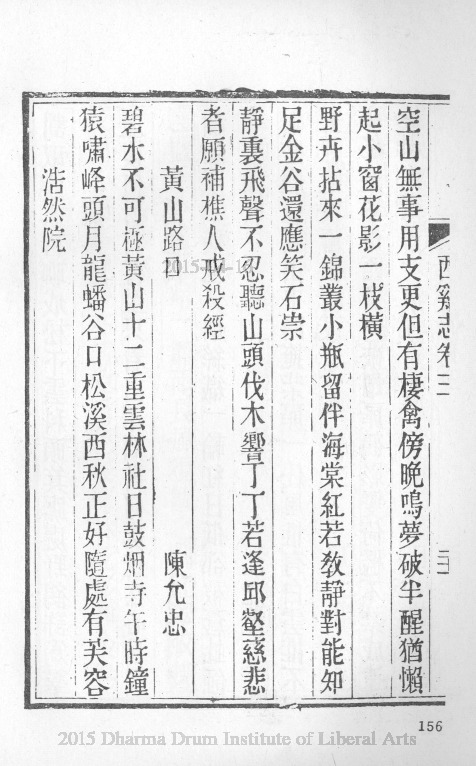 西谿志卷三
空山無事用支更但有棲禽傍晚鳴夢破半醒猶懶
起小窗花影一枝橫
野卉拈來一錦叢小瓶留伴海棠紅若教靜對能知
足金谷還應笑石崇
靜裏飛聲不忍聽山頭伐木響丁丁若逢邱壑慈悲
者願補樵人戒殺經
黃山路口 陳允忠
碧水不可極黃山十二重雲林社日鼓烟寺午時鐘
猿嘯峰頭月龍蟠谷口松溪西秋正好隨處有芙容
浩然院
156
2015 Dharma Drum Institute of Liberal Arts